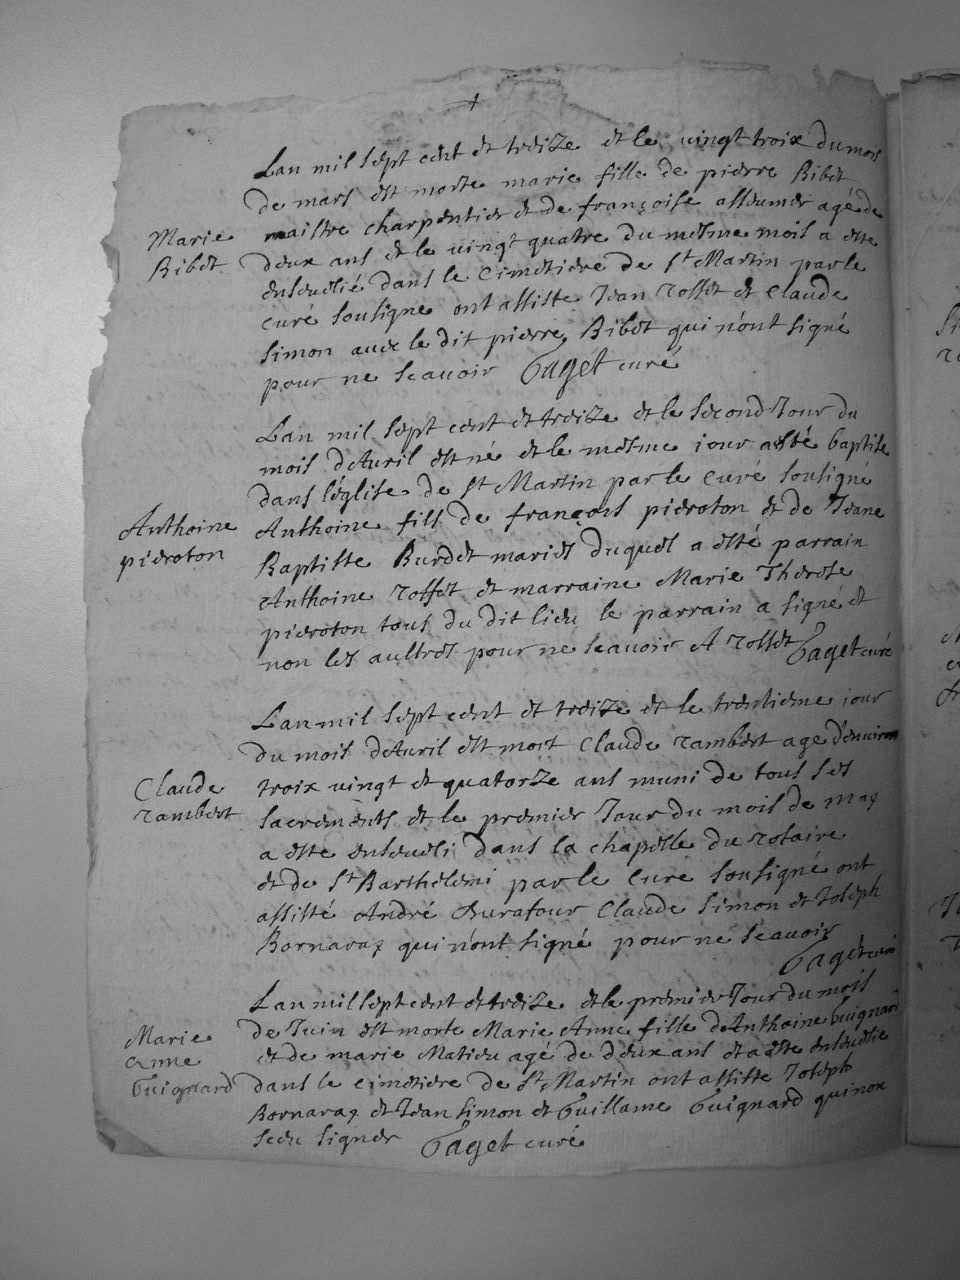 +
Lan mil sept cent et treize et le vingt troix du mois
de mars est morte marie fille de pierre Ribet
maistre charpentier et de françoise asseumer agé de
Marie
Ribet
deux ans et le vingt quatre du mesme mois a este
enseuelié dans le Cimetiere de St Martin par le
curé sousigne ont assiste Jean rosset et Claude
simon auec le dit pierre Ribet qui n'ont signé
pour ne scauoir Gaget curé
Lan mil sept cent et treize et le second Jour du
mois d'Auril est né et le mesme iour a esté baptise
dans l'église de St Martin par le Curé sousigné
Anthoine
pieroton
Anthoine fils de françois pieroton et de Jeane
Baptiste Burdet mariés duquel a esté parrain
Anthoine rosset et marraine Marie Therese
pieroton tous du dit lieu le parrain a signé et
non les aultres pour ne scauoir A rosset Gaget curé
Lan mil sept cent et treize et le trentieme iour
du mois d'Auril est mort Claude rambert age d'enuiron
Claude
rambert
troix vingt et quatorze ans muni de tous ses
sacrements et le premier Jour du mois de may
a este enseueli dans la chapelle du rosaire
et de St Barthelemi par le Curé sousigné ont
assisté André Burafour Claude simon et Joseph
Bornaraz qui n'ont signé pour ne scauoir
Gaget curé
Lan mil sept cent et treize et le premier Jour du mois
de Juin est morte Marie Anne fille d'Anthoine Guignard
Marie
Anne
Guignard
et de marie Matieu agé de deux ans et a este enseuelie
dans le cimetiere de St Martin ont assiste Joseph
Bornaraz et Jean simon et Guillame Guignard qui non
sceu signer Gaget curé